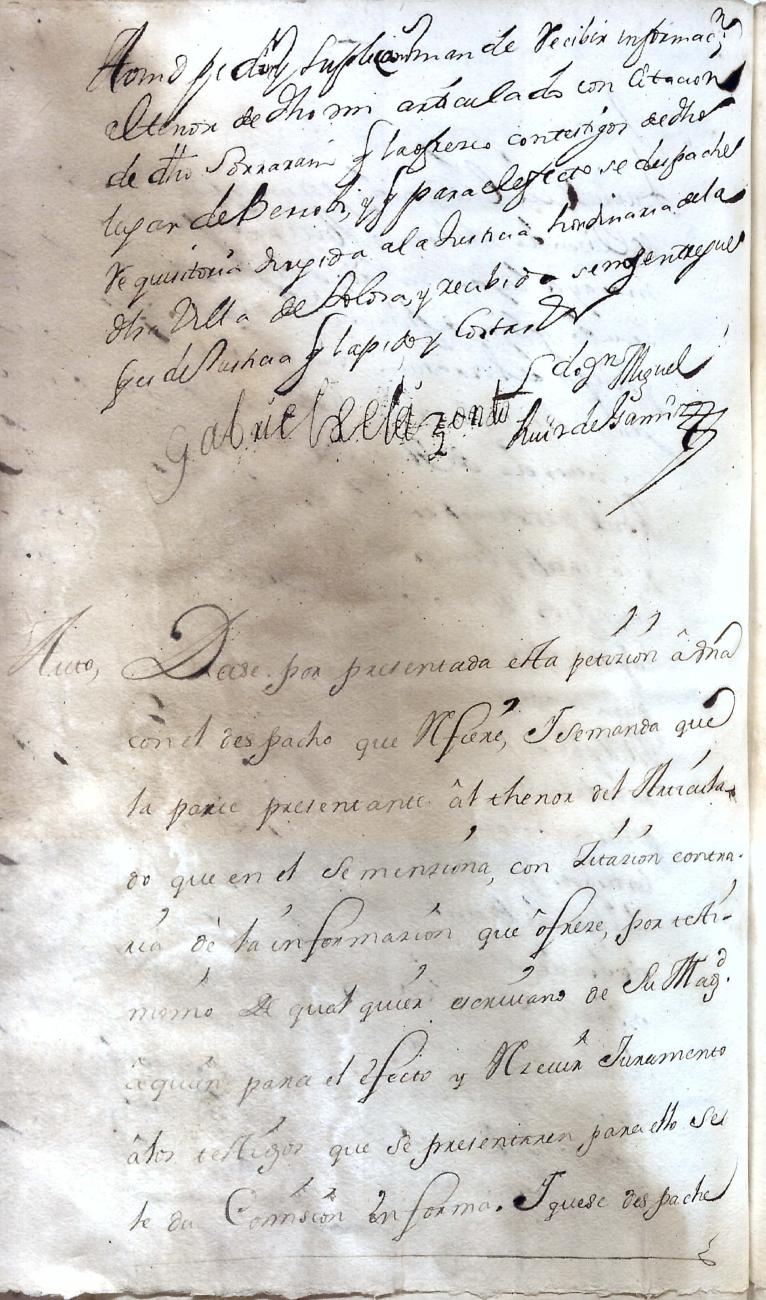 A Vmd pido y suplico mande Recibir informacⁿ
al tenor de dho mi articulado con Citacion
de dho Sorrarain q̃ la ofrezco con testigos de dho
lugar de Berrobi, y q̃ para el efecto se despache
Requisitoria dirigida a la Justicia hordinaria de la
dha Villa de Tolosa, y recibida se me entregue
q̃ es de Justicia q̃ la pido y Costas
Lizdo Dn Miguel
Gabriel de elizondo Ruiz de Gamiz
Auto, Dase por presentada esta petizión
con el despacho que Refiere, I se manda que
la parte presentante âl thenor del Articula-
do que en el se menziona, con Zitazion contra-
ria dè la informazión que ôfreze, por testi-
monio de qual quier escriuano de Su Magᵈ.
âquien para el efecto y Rezeuir Juramento
âlos testigos que se presentaren para ello se
le da Comisión en forma. I que se despache